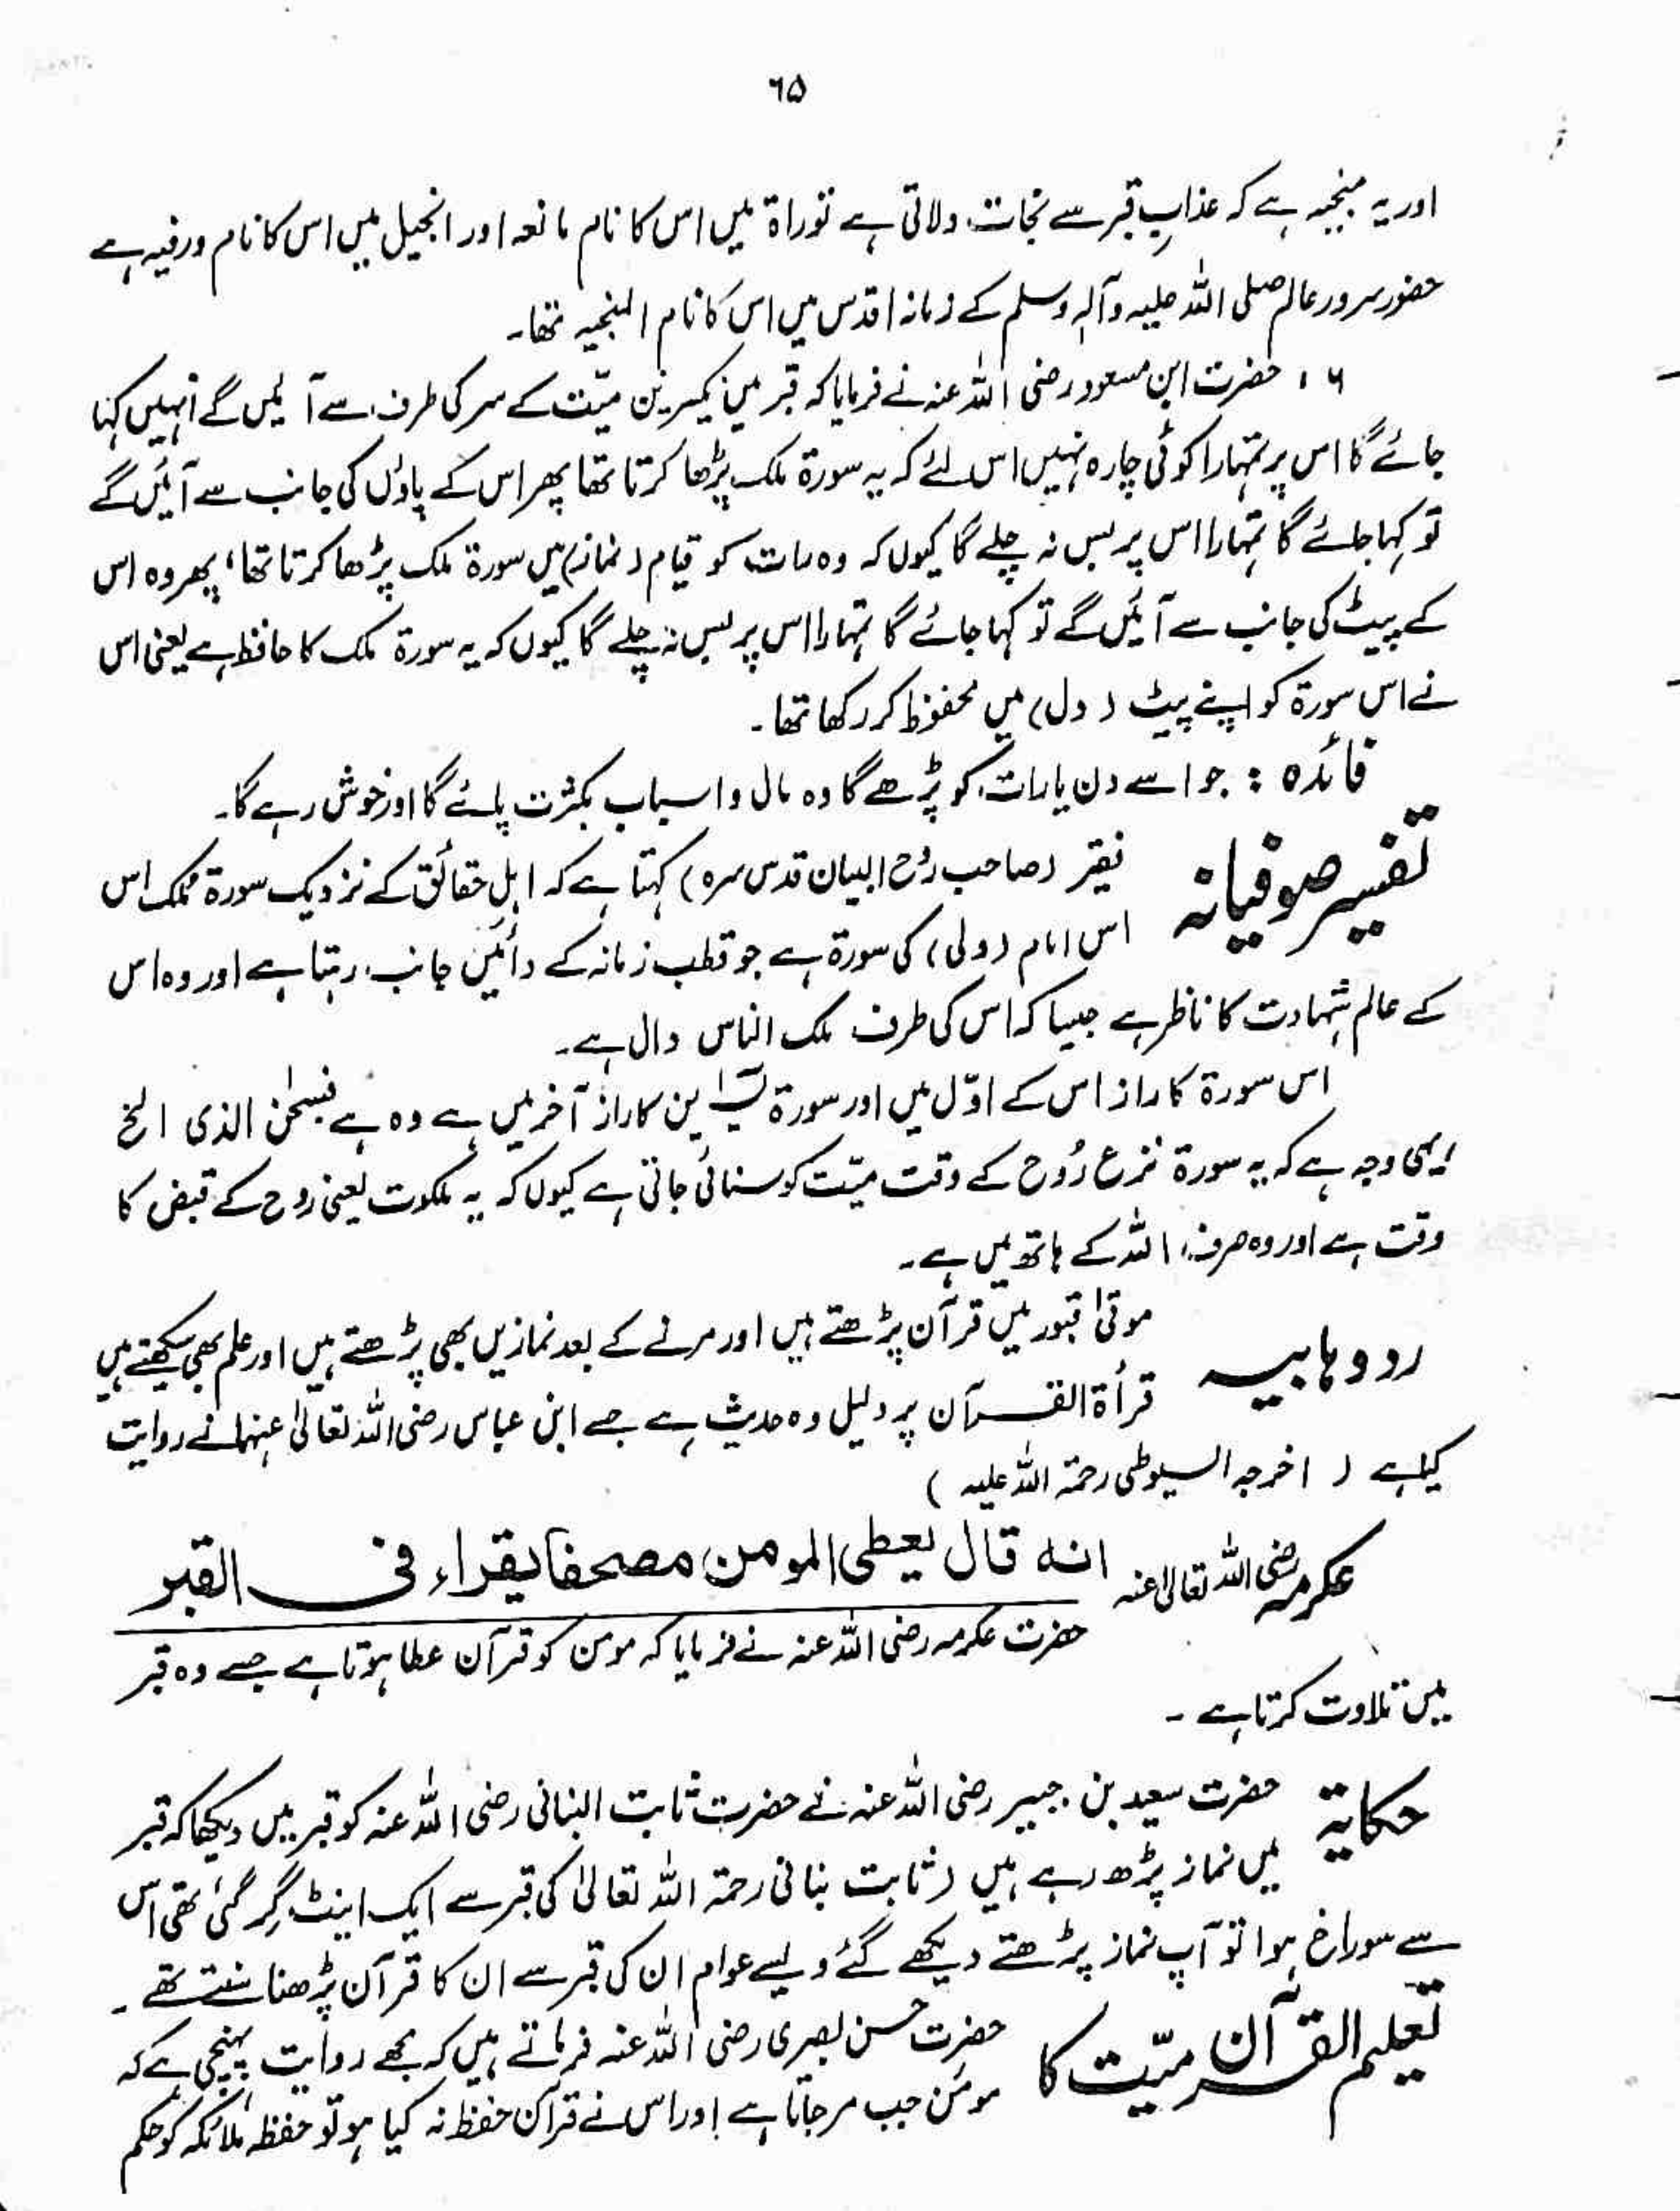 ٦۵
اور یہ منجیہ ہے کہ عذابِ قبر سے نجات دلاتی ہے توراۃ میں اس کا نام مانعہ اور انجیل میں اس کا نام ورفیہ ہے
حضور سرور عالم صلی اللہ علیہ وآلہٖ وسلم کے زمانہ اقدس میں اس کا نام المنجیہ تھا۔
۶ ، حضرت ابن مسعود رضی اللہ عنہ نے فرمایا کہ قبر میں نکیرین میّت کے سر کی طرف سے آئیں گے انہیں کہا
جائے گا اس پر تمہارا کوئی چارہ نہیں اس لئے کہ یہ سورۃ ملک پڑھا کرتا تھا پھر اس کے پاؤں کی جانب سے آئیں گے
تو کہا جائے گا تمہارا اس پر بس نہ چلے گا کیوں کہ وہ رات کو قیام (نماز) میں سورۃ ملک پڑھا کرتا تھا، پھر وہ اس
کے پیٹ کی جانب سے آئیں گے تو کہا جائے گا تمہارا اس پر بس نہ چلے گا کیوں کہ یہ سورۃ ملک کا حافظ ہے یعنی اس
نے اس سورۃ کو اپنے پیٹ (دل) میں محفوظ کر رکھا تھا۔
فائدہ : جو اسے دن یا رات کو پڑھے گا وہ مال و اسباب بکثرت پائے گا اور خوش رہے گا۔
تفسیر صوفیانہ فقیر (صاحب رُوح البیان قدس سرہ) کہتا ہے کہ اہلِ حقائق کے نزدیک سورۃ ملک اس
اس امام (ولی) کی سورۃ ہے جو قطب زمانہ کے دائیں جانب رہتا ہے اور وہ اس
کے عالم شہادت کا ناظر ہے جیسا کہ اس کی طرف ملک الناس دال ہے۔
اس سورۃ کا راز اس کے اوّل میں اور سورۃ یٰسین کا راز آخر میں ہے وہ ہے فسبحٰن الذی الخ
یہی وجہ ہے کہ یہ سورۃ نزع رُوح کے وقت میّت کو سنائی جاتی ہے کیوں کہ یہ ملکوت یعنی روح کے قبض کا
وقت ہے اور وہ صرف اللہ کے ہاتھ میں ہے۔
رد وہابیہ موتیٰ قبور میں قرآن پڑھتے ہیں اور مرنے کے بعد نمازیں بھی پڑھتے ہیں اور علم بھی سیکھتے ہیں
قرأۃ القرآن پر دلیل وہ حدیث ہے جسے ابن عباس رضی اللہ تعالیٰ عنہما نے روایت
کیا ہے ( اخرجہ السیوطی رحمۃ اللہ علیہ )
عکرمہ رضی اللہ تعالیٰ عنہ انہ قال یعطی المومن مصحفا یقراء فی القبر
حضرت عکرمہ رضی اللہ عنہ نے فرمایا کہ مومن کو قرآن عطا ہوتا ہے جسے وہ قبر
میں تلاوت کرتا ہے ۔
حکایۃ حضرت سعید بن جبیر رضی اللہ عنہ نے حضرت ثابت البنانی رضی اللہ عنہ کو قبر میں دیکھا کہ قبر
میں نماز پڑھ رہے ہیں (ثابت بنانی رحمۃ اللہ تعالیٰ کی قبر سے ایک اینٹ گر گئی تھی اس
سے سوراخ ہوا تو آپ نماز پڑھتے دیکھے گئے ویسے عوام ان کی قبر سے ان کا قرآن پڑھنا سنتے تھے ۔
تعلیم القرآن میّت کا حضرت حسن بصری رضی اللہ عنہ فرماتے ہیں کہ مجھے روایت پہنچی ہے کہ
مومن جب مر جاتا ہے اور اس نے قرآن حفظ نہ کیا ہو تو حفظہ ملائکہ کو حکم